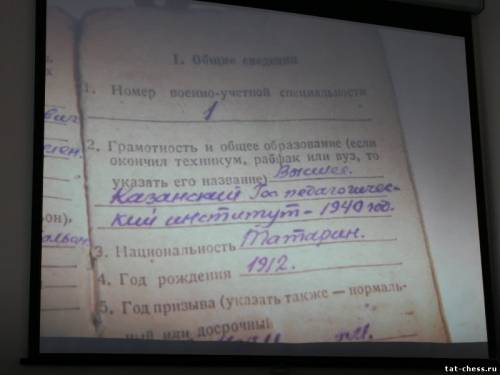 I. Общие сведения
1. Номер военно-учетной специальности
1
2. Грамотность и общее образование (если
окончил техникум, рабфак или вуз, то
указать его название) Высшее.
Казанский Гос педагогичес-
кий институт - 1940 год.
3. Национальность Татарин.
4. Год рождения 1912.
5. Год призыва (указать также — нормаль-
ный или досрочный
tat-chess.ru